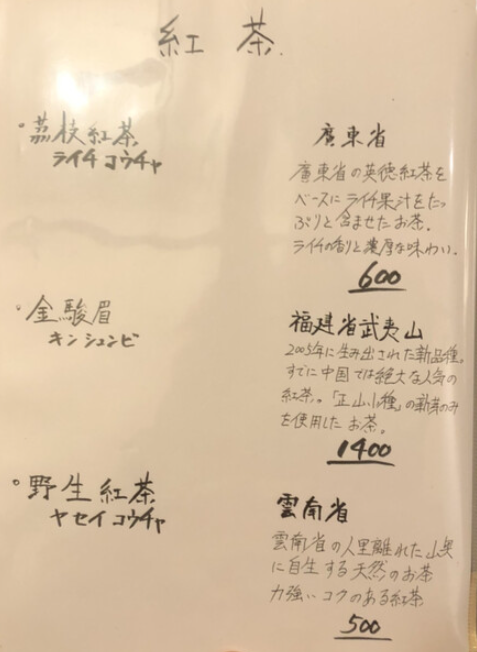 紅茶
・荔枝紅茶
ライチ コウチャ
廣東省
廣東省の英徳紅茶を
ベースに ライチ果汁をたっ
ぷりと含ませたお茶。
ライチの香りと濃厚な味わい。
600
・金駿眉
キンシュンビ
福建省武夷山
2005年に生み出された新品種。
すでに中国では絶大な人気の
紅茶。「正山小種」の新芽のみ
を使用した お茶。
1400
・野生紅茶
ヤセイ コウチャ
雲南省
雲南省の人里離れた山奥
に自生する天然のお茶
力強いコクのある紅茶
500